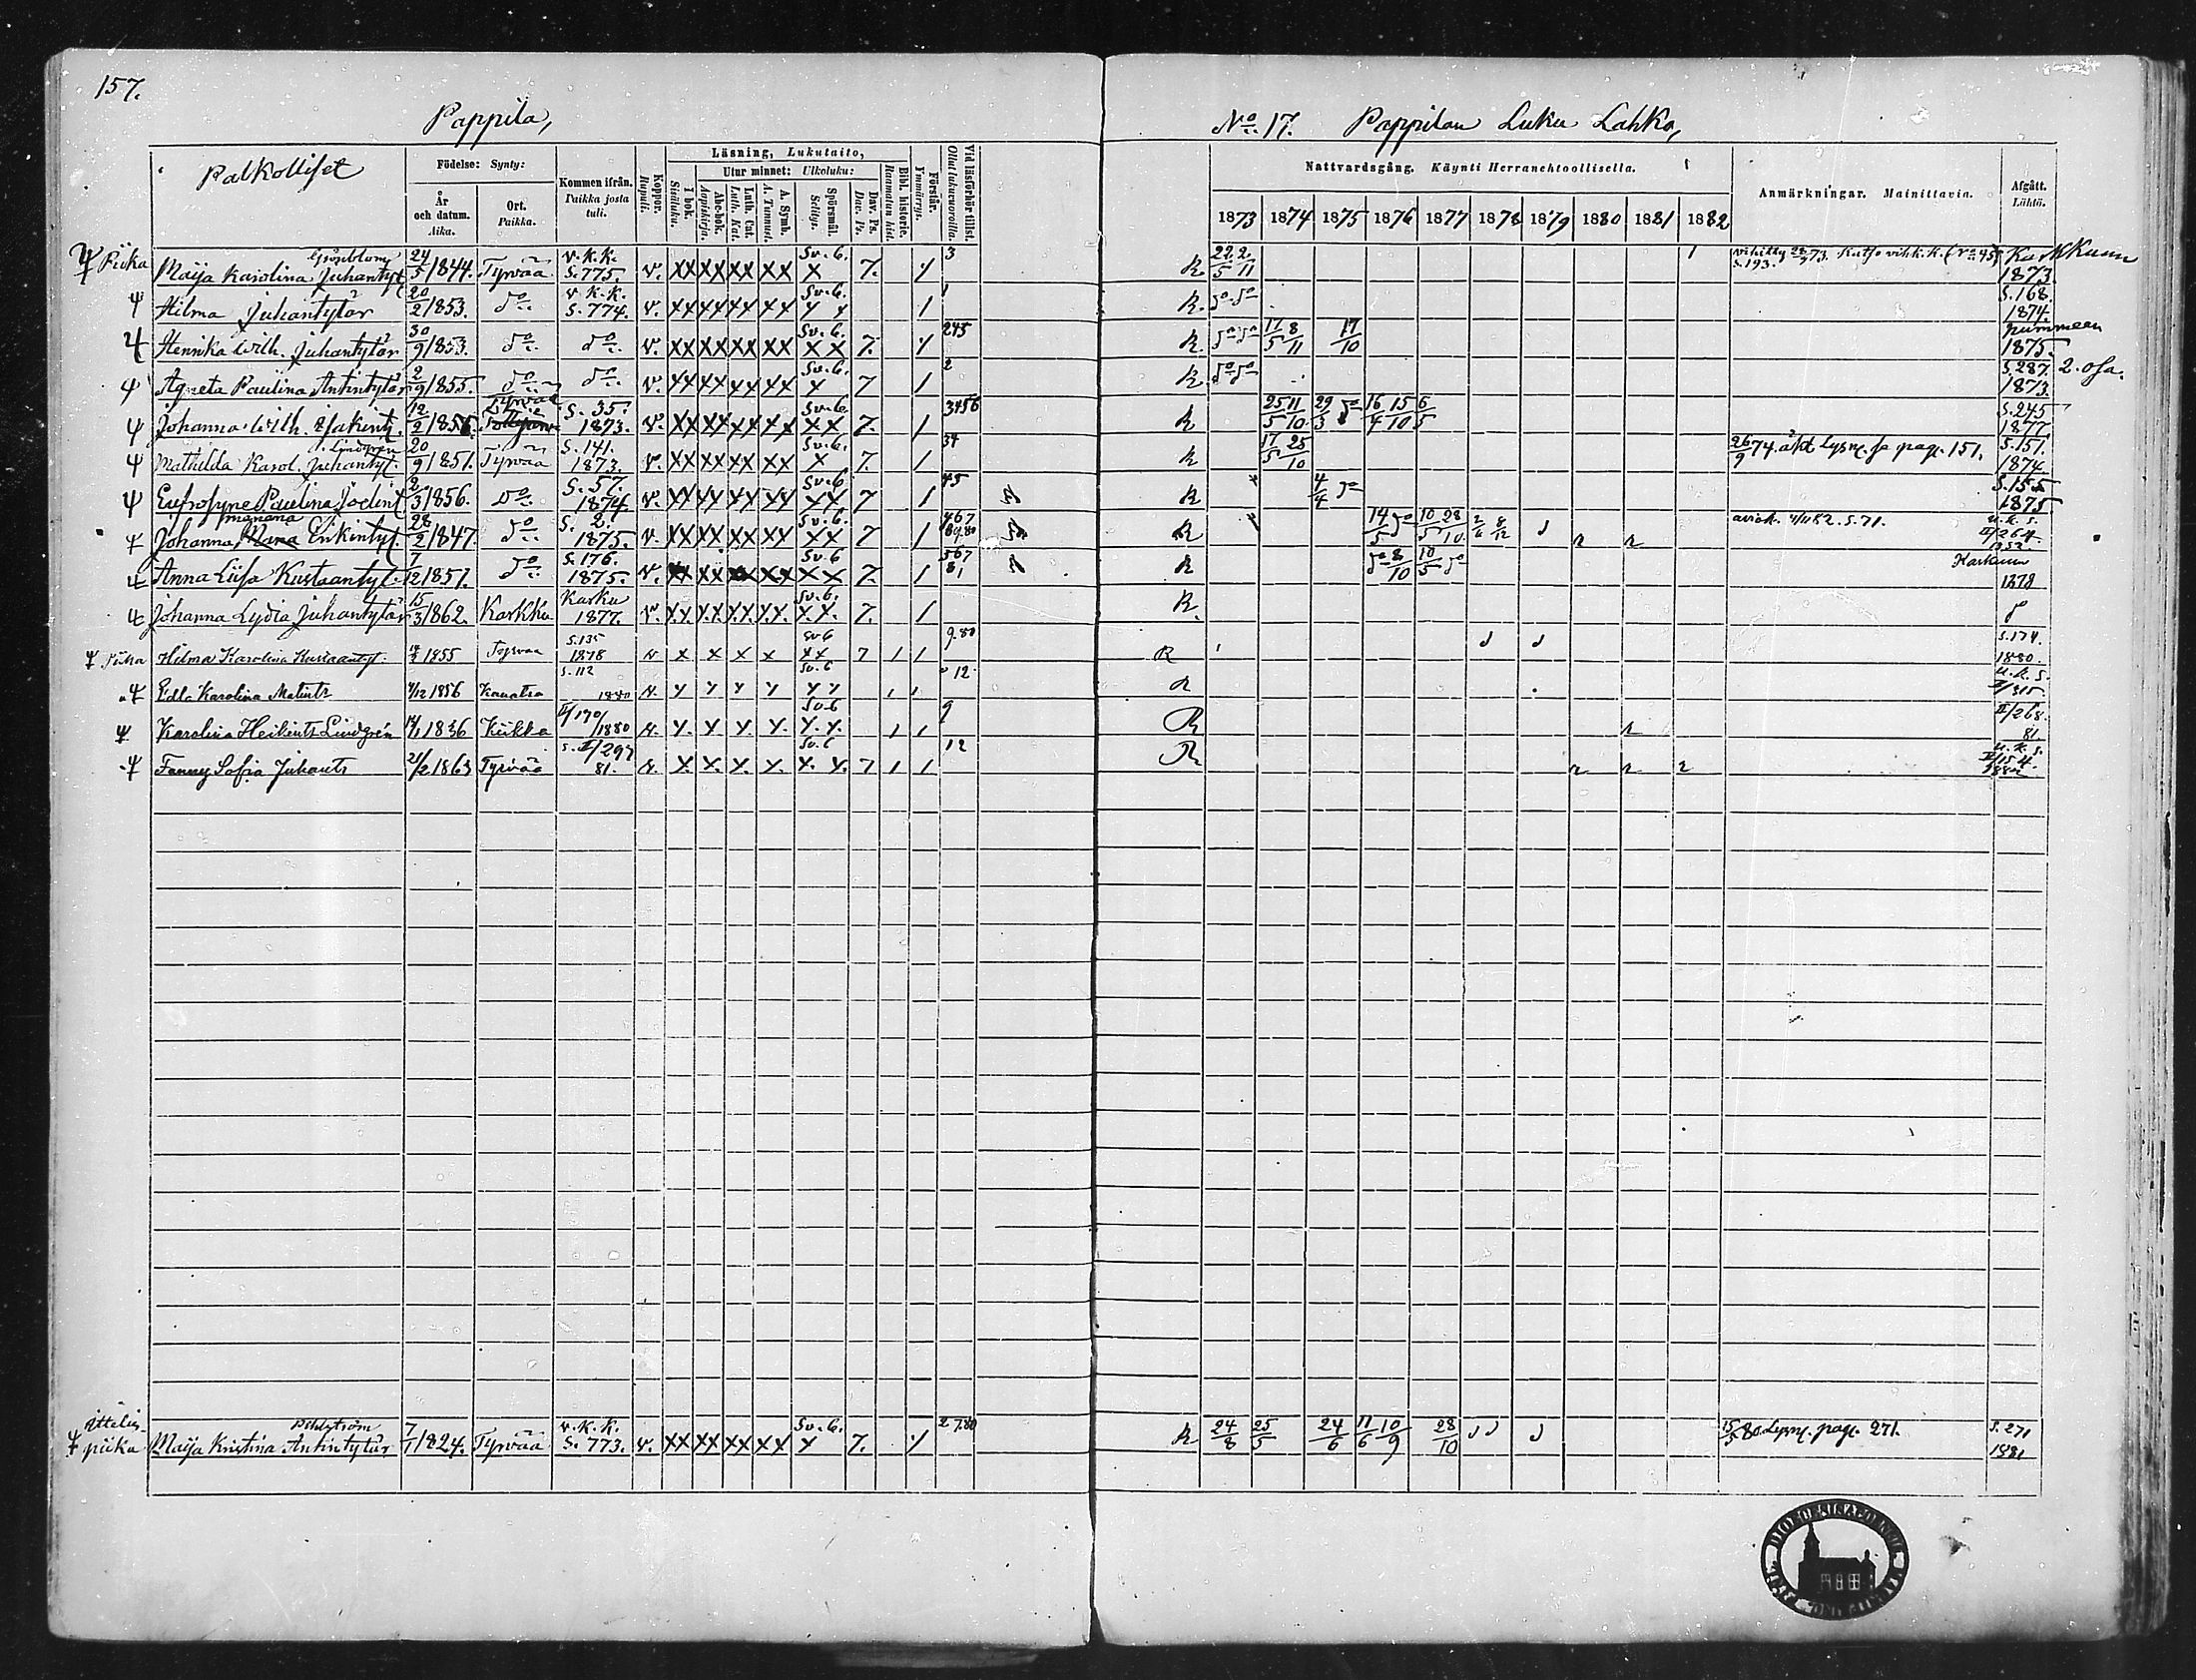 157.
Pappila,
No 17. Pappilan Luku Lahko,
Palkolliset
Födelse: Synty:
År och datum. Aika.
Ort. Paikka.
Kommen ifrån. Paikka josta tuli.
Koppor. Rupuli.
Läsning, Lukutaito,
I bok. Sisäluku.
Utur minnet: Ulkoluku:
Abc-bok. Aapiskirja.
Luth. Cat. Luth. Kat.
A. Symb. A. Tunnust.
Spörsmål. Selitys.
Dav. Ps. Dav. Ps.
Bibl. historie. Raamatun hist.
Förstår. Ymmärrys.
Vid läsförhör tillst. Ollut lukuvuoroilla.
Nattvardsgång. Käynti Herranehtoollisella.
1873 1874 1875 1876 1877 1878 1879 1880 1881 1882
Anmärkningar. Mainittavia.
Afgått. Lähtö.
Piika Maija Karolina Juhantyt 24/5 1844. Tyrvää v.k.k. S. 775. v. XX XX XX XX Sv. 6. X 7. 3 R. 22/5 2/11 S. 193. Karkkuun 1873.
Hilma Juhantytär 20/2 1853. do v.k.k. S. 774. v. XX XX XX XX Sv. 6. 1 R. do do S. 168. 1874.
Henrika Wilh. Juhantytär 30/9 1853. do do v. XX XX XX XX Sv. 6. XX 7. 245 R. do do 17/5 8/11 17/10 1875.
Agneta Paulina Antintytär 2/9 1855. do do v. XX XX XX XX Sv. 6. X 7 2 R. do do S. 287. 2. osa. 1873.
Johanna Wilh. 12/2 1856. Tyrvää S. 35. 1873. v. XX XX XX XX Sv. 6. XX 7. 3456 R 25/5 11/10 29/3 do 16/4 15/10 6/5 S. 245 1877
Mathilda Karol. Juhantyt. Lindgren 20/9 1851. Tyrvää S. 141. 1873. v. XX XX XX XX Sv. 6. X 7. 34 R 17/5 25/10 26/9 74. Lysn. pag. 151. S. 151. 1874
Eufrosyne Paulina 2/3 1856. do S. 57. 1874 v. XX XX XX XX Sv. 6 XX 7 45 R 4/4 do S. 155 1875
Johanna Erikintyt. 28/2 1847. do S. 2. 1875. v. XX XX XX XX Sv. 6. XX 7 467 89.80 R 14/5 do 10/5 28/10 2/6 8/12 aviok. 4/11 82. S. 71. u.k.s. II/264.
Anna Liisa Kustaantyt. 7/12 1857. do S. 176. 1875. v. XX XX XX XX Sv. 6 XX 7. 567 81 R do 8/10 10/5 do Karkuun 1878
Johanna Lydia Juhantytär 15/3 1862. Karkku Karku 1877. v. X.X. X.X. X.X. X.X. Sv. 6. X.X. 7. R.
Piika Hilma Karolina Kustaantyt. 1855 Tyrvää S. 135 1878 X X X X Sv 6 XX 7 9.80 R S. 174. 1880.
Edla Karolina Matints 4/12 1856 S. 112 1880 Sv. 6 12. R u.k.s. II/315.
Karolina Heikints Lindgrén 14/1 1836 Kiikka II/190/1880 X. X X X. Sv. 6 X.X. 9 R II/268. 81.
Fanny Sofia Juhants 21/2 1863 Tyrvää S. II/297 81. X. X. X. X. Sv. 6 X. X. 7 12 R u.k.s. II/154. 1882
piika Maija Kristina Antintytär 7/1 1824. Tyrvää v.k.k. S. 773. v. XX XX XX XX Sv. 6. X 7. 27.80 R 24/8 25/5 24/6 11/6 10/9 28/10 15/5 80. Lysn. pag. 271. S. 271 1881